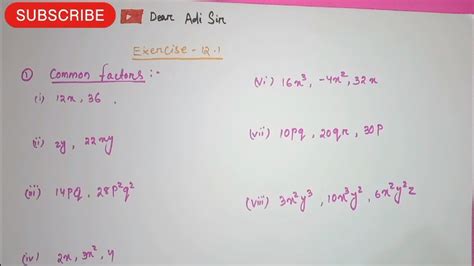 SUBSCRIBE Dear Adi Sir
Exercise - 12.1
① Common factors :-
(i) 12x, 36
(ii) 2y, 22xy
(iii) 14PQ, 28P²q²
(iv) 2x, 3x², 4
(vi) 16x³, -4x², 32x
(vii) 10pq, 20qr, 30P
(viii) 3x²y³, 10x³y², 6x²y²z